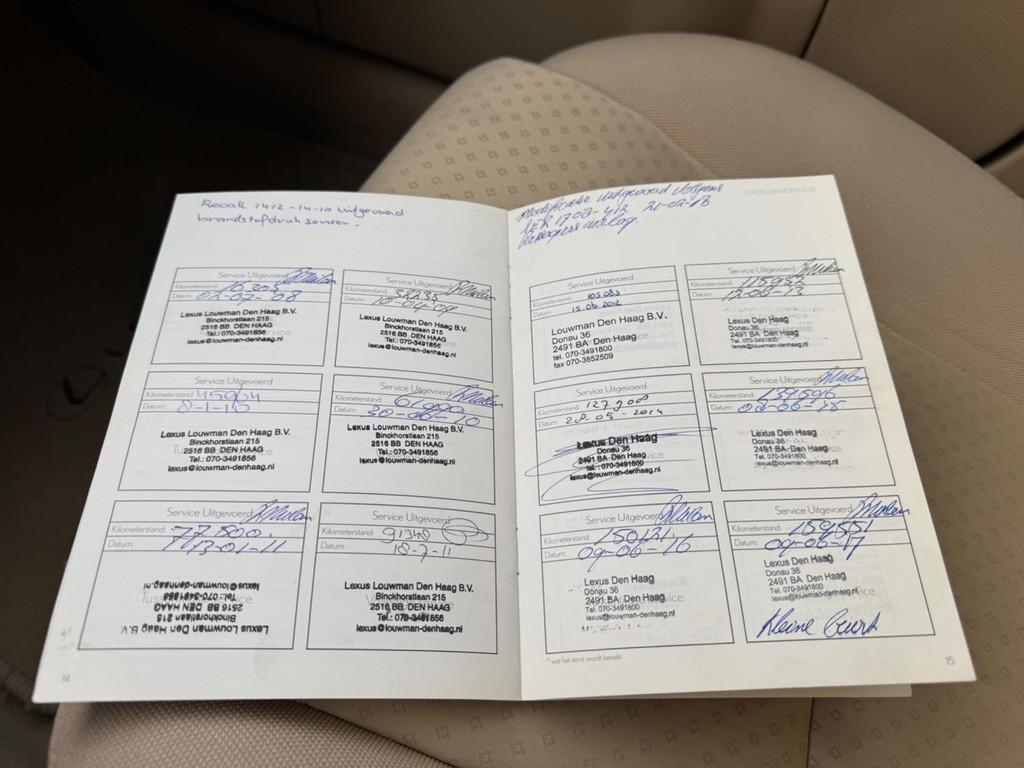 Recall 1412-14-10 uitgevoerd
brandstofdruk sensor.
Service Uitgevoerd
Kilometerstand: 16305
Datum: 02-07-'08
Lexus Louwman Den Haag B.V.
Binckhorstlaan 215
2516 BB DEN HAAG
Tel.: 070-3491856
lexus@louwman-denhaag.nl
Service Uitgevoerd
Kilometerstand:
Datum:
Lexus Louwman Den Haag B.V.
Binckhorstlaan 215
2516 BB DEN HAAG
Tel.: 070-3491856
lexus@louwman-denhaag.nl
Service Uitgevoerd
Kilometerstand: 45964
Datum: 8-1-10
Lexus Louwman Den Haag B.V.
Binckhorstlaan 215
2516 BB DEN HAAG
Tel.: 070-3491856
lexus@louwman-denhaag.nl
Service Uitgevoerd
Kilometerstand:
Datum:
Lexus Louwman Den Haag B.V.
Binckhorstlaan 215
2516 BB DEN HAAG
Tel.: 070-3491856
lexus@louwman-denhaag.nl
Service Uitgevoerd
Kilometerstand: 77.800.
Datum: 13-01-11
Lexus Louwman Den Haag B.V.
Binckhorstlaan 215
2516 BB DEN HAAG
Tel.: 070-3491856
lexus@louwman-denhaag.nl
Service Uitgevoerd
Kilometerstand: 91348
Datum: 18-7-11
Lexus Louwman Den Haag B.V.
Binckhorstlaan 215
2516 BB DEN HAAG
Tel.: 070-3491856
lexus@louwman-denhaag.nl
14
LEXUS ONDERHOUD
uitgevoerd volgens
21-02-18
Service Uitgevoerd
Kilometerstand: 105.083
Datum: 15.06.2012
Louwman Den Haag B.V.
Donau 36
2491 BA Den Haag
tel. 070-3491800
fax 070-3852509
Service Uitgevoerd
Kilometerstand: 115952
Datum: 12-06-13
Lexus Den Haag
Donau 36
2491 BA Den Haag
Tel. 070-3491800
Service Uitgevoerd
Kilometerstand: 127908
Datum: 28-05-2014
Lexus Den Haag
Donau 36
2491 BA Den Haag
tel.: 070-3491800
lexus@louwman-denhaag.nl
Service Uitgevoerd
Kilometerstand: 139596
Datum:
Lexus Den Haag
Donau 36
2491 BA Den Haag
Tel. 070-3491800
lexus@louwman-denhaag.nl
Service Uitgevoerd
Kilometerstand: 150121
Datum: 09-06-16
Lexus Den Haag
Donau 36
2491 BA Den Haag
Tel. 070-3491800
lexus@louwman-denhaag.nl
Service Uitgevoerd
Kilometerstand: 159551
Datum: 09-06-17
Lexus Den Haag
Donau 36
2491 BA Den Haag
Tel. 070-3491800
lexus@louwman-denhaag.nl
Kleine beurt
* wat het eerst wordt bereikt
15